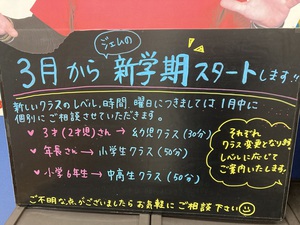 ジェムの
3月から 新学期スタートします!!
新しいクラスのレベル、時間、曜日につきましては1月中に
個別にご相談させていただきます。
♥ 3才(2才児)さん → 幼児クラス(30分)
♥ 年長さん → 小学生クラス(50分)
♥ 小学6年生 → 中高生クラス(50分)
それぞれ
クラス変更となります
レベルに応じて
ご案内いたします。
ご不明な点がございましたらお気軽にご相談下さい☺